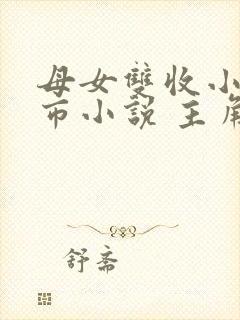 母女雙收小
市小說 主角
舒斋